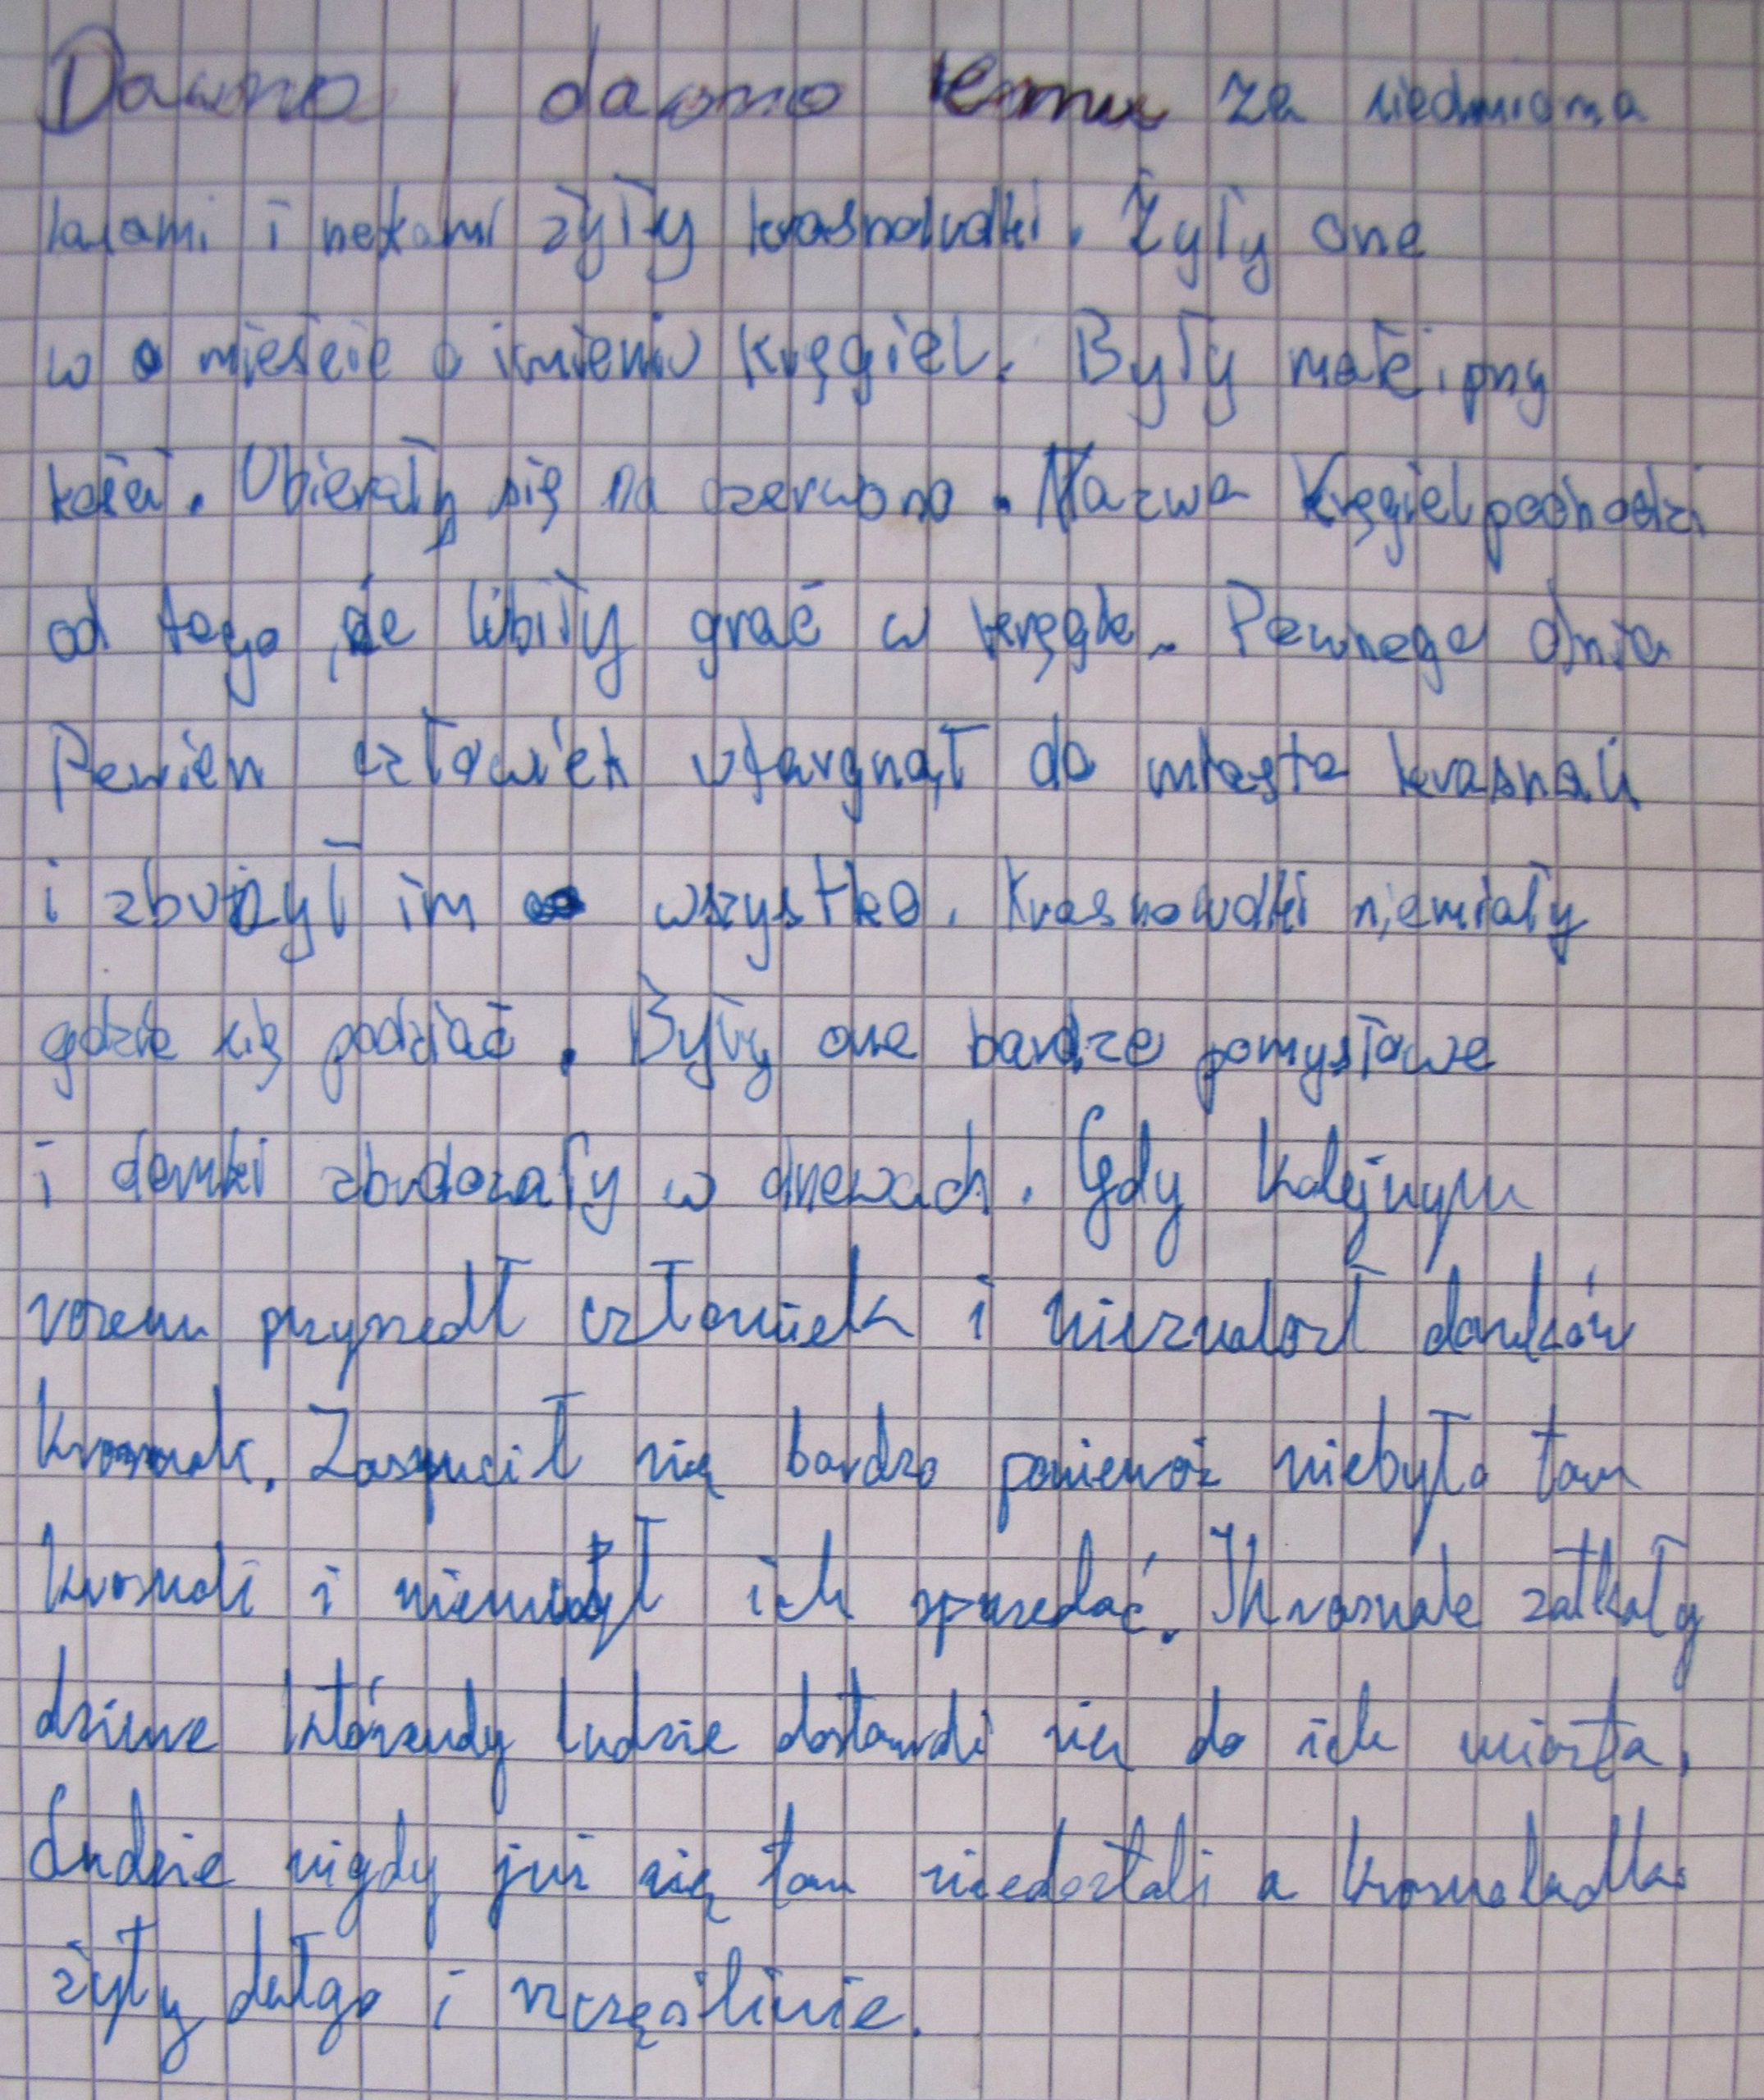 Dawno, dawno temu za siedmioma
lasami i rzekami żyły krasnoludki. Żyły one
w mieście o imieniu Kręgiel. Były małe i przy
kości. Ubierały się na czerwono. Nazwa Kręgiel pochodzi
od tego, że lubiły grać w kręgle. Pewnego dnia
Pewien człowiek wtargnął do miasta krasnali
i zbużył im wszystko. Krasnowudki niemiały
gdzie się podziać. Były one bardzo pomysłowe
i domki zbudowały w drzewach. Gdy kolejnym
razem przyszedł człowiek i nieznalazł domków
krasnali. Zasmucił się bardzo ponieważ niebyło tam
krasnali i niemógł ich sprzedać. Krasnale zatkały
dziure którzendy ludzie dostawali sie do ich miasta.
Ludzie nigdy już się tam niedostali a krasnoludki
żyły długo i szczęśliwie.